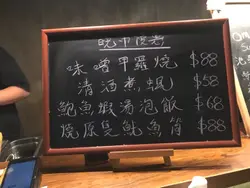 晚市推介
味噌甲羅燒 $88
清酒煮蜆 $58
鮑魚蝦湯泡飯 $68
燒原隻魷魚筒 $88